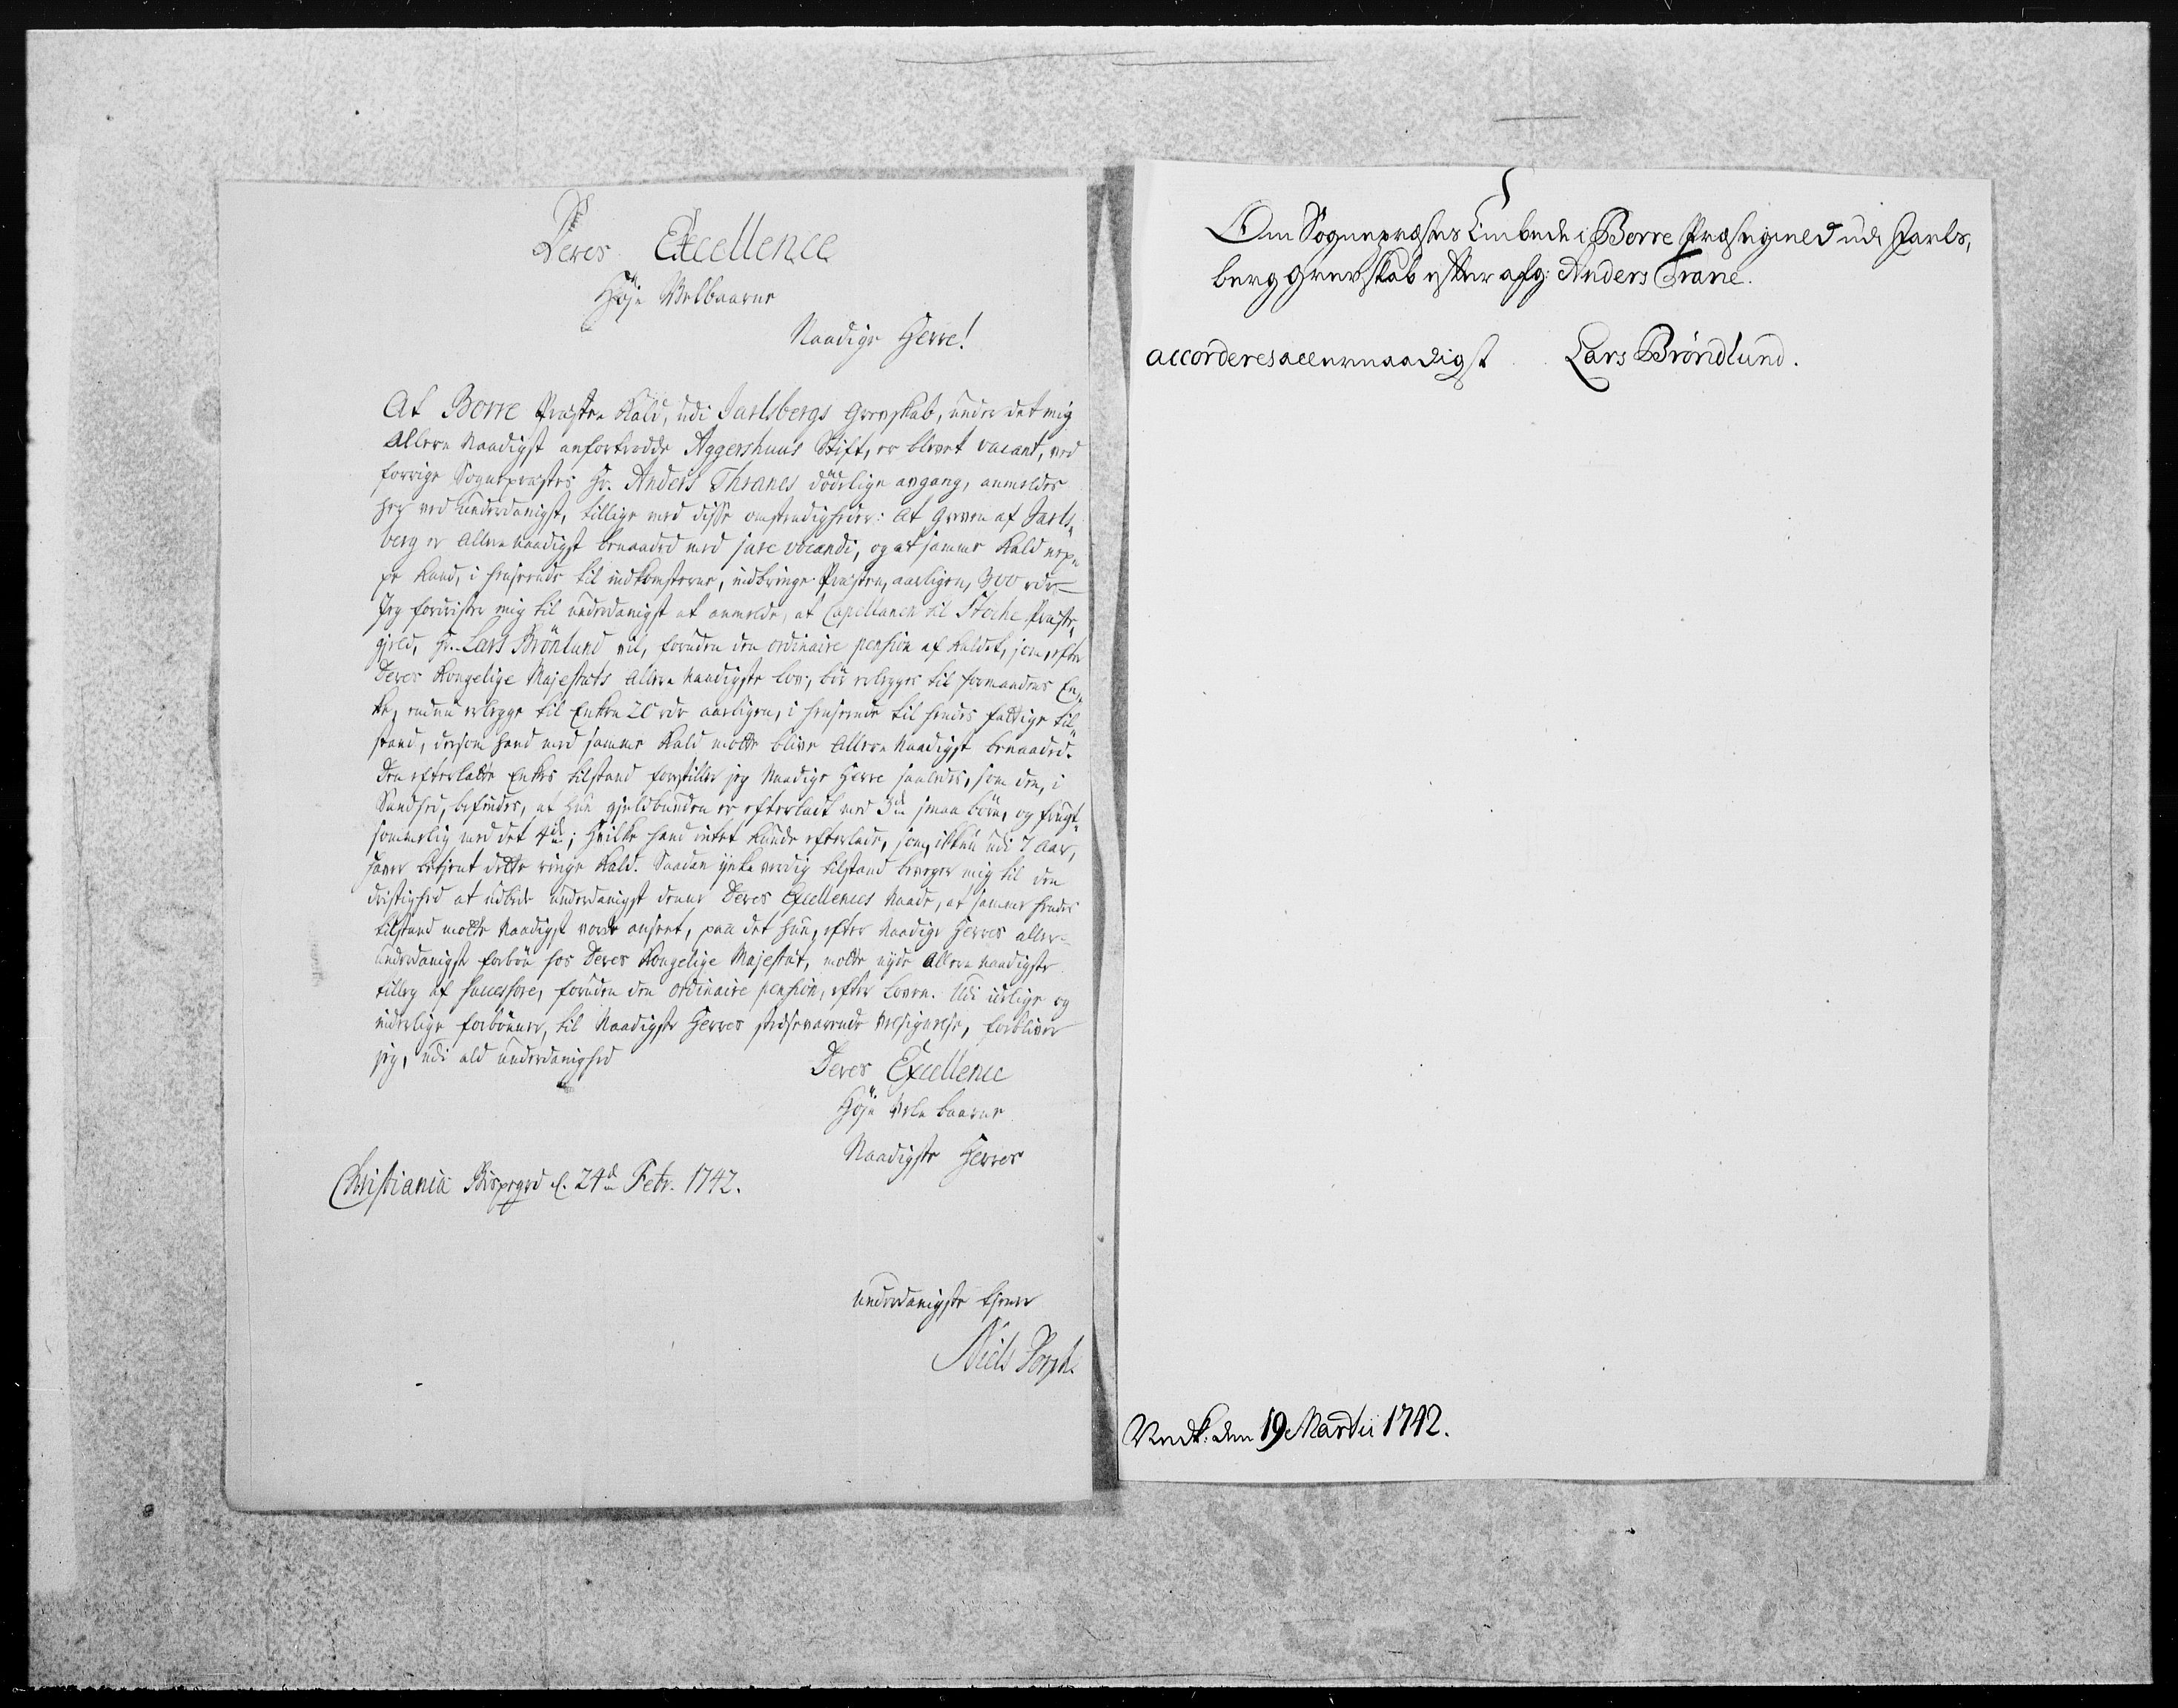 Deres Excellence
Høje Velbaarne
Naadige Herre!
At Borre Præste Kald, udi Jarlsbergs Grevskab, under det mig
Allere Naadigst anfortroede Aggershuus Stift, er blevet vacant, ved
forrige Sognepræstes Hr. Anders Thranes dödelige avgang, anmeldes
her ved underdanigst, tillige med disse omstendigheder: At Greven af Jarls„
berg er Allere naadigst benaadet med jure vocandi, og at samme Kald nep„
pe kand, i henseende til indkomsterne, indbringe Præsten, aarligen, 300 rdr
Jeg fordrister mig til underdanigst at anmelde, at Capellanen til Stoche Præste„
gield, Hr. Lars Brönlund vil, foruden den ordinaire pension af Kaldet, som, efter
Deres Kongelige Majestæts Allere naadigste Lov, bör erlegges til formandens En„
ke, endnu erlegge til Enken 20 rdr aarligen, i henseende til hendes fattige til„
stand, dersom hand med samme Kald motte blive Allere Naadigst benaadet.
Den efterladte Enkes tilstand forestiller jeg Naadige Herre saaledes, som den, i
Sandhed, befindes, at hun gieldbunden er efterladt med 3de smaa börn, og frugt„
sommelig med det 4de; hvilke hand intet kunde efterlade, som, ikkun udi 7 Aar,
haver betient dette ringe Kald. Saadan ynke verdig tilstand beveger mig til den
dristighed at udbede underdanigst denne Deres Excellences Naade, at samme hendes
tilstand motte Naadigst vorde anseet, paa det hun, efter Naadige Herres aller„
underdanigste forbön hos Deres Kongelige Majestæt, motte nyde Allere naadigste
tilleg af successore, foruden den ordinaire pension, efter Loven. Udi idelige og
inderlige forbönner, til Naadigste Herres stedsevarende Velsignelse, forbliver
jeg, udi ald underdanighed
Deres Excellence
Høje Vele baarne
Naadigste Herres
Christiania Bispegrd d. 24de Febr. 1742.
underdanigste tiener
Niels Dorph.
Om Sognepræstes Embede i Borre Præstegield udi Jarls„
berg Grevskab efter afg: Anders Trane.
accorderes allernaadigst Lars Bröndlund.
Vndk: den 19 Martii 1742.